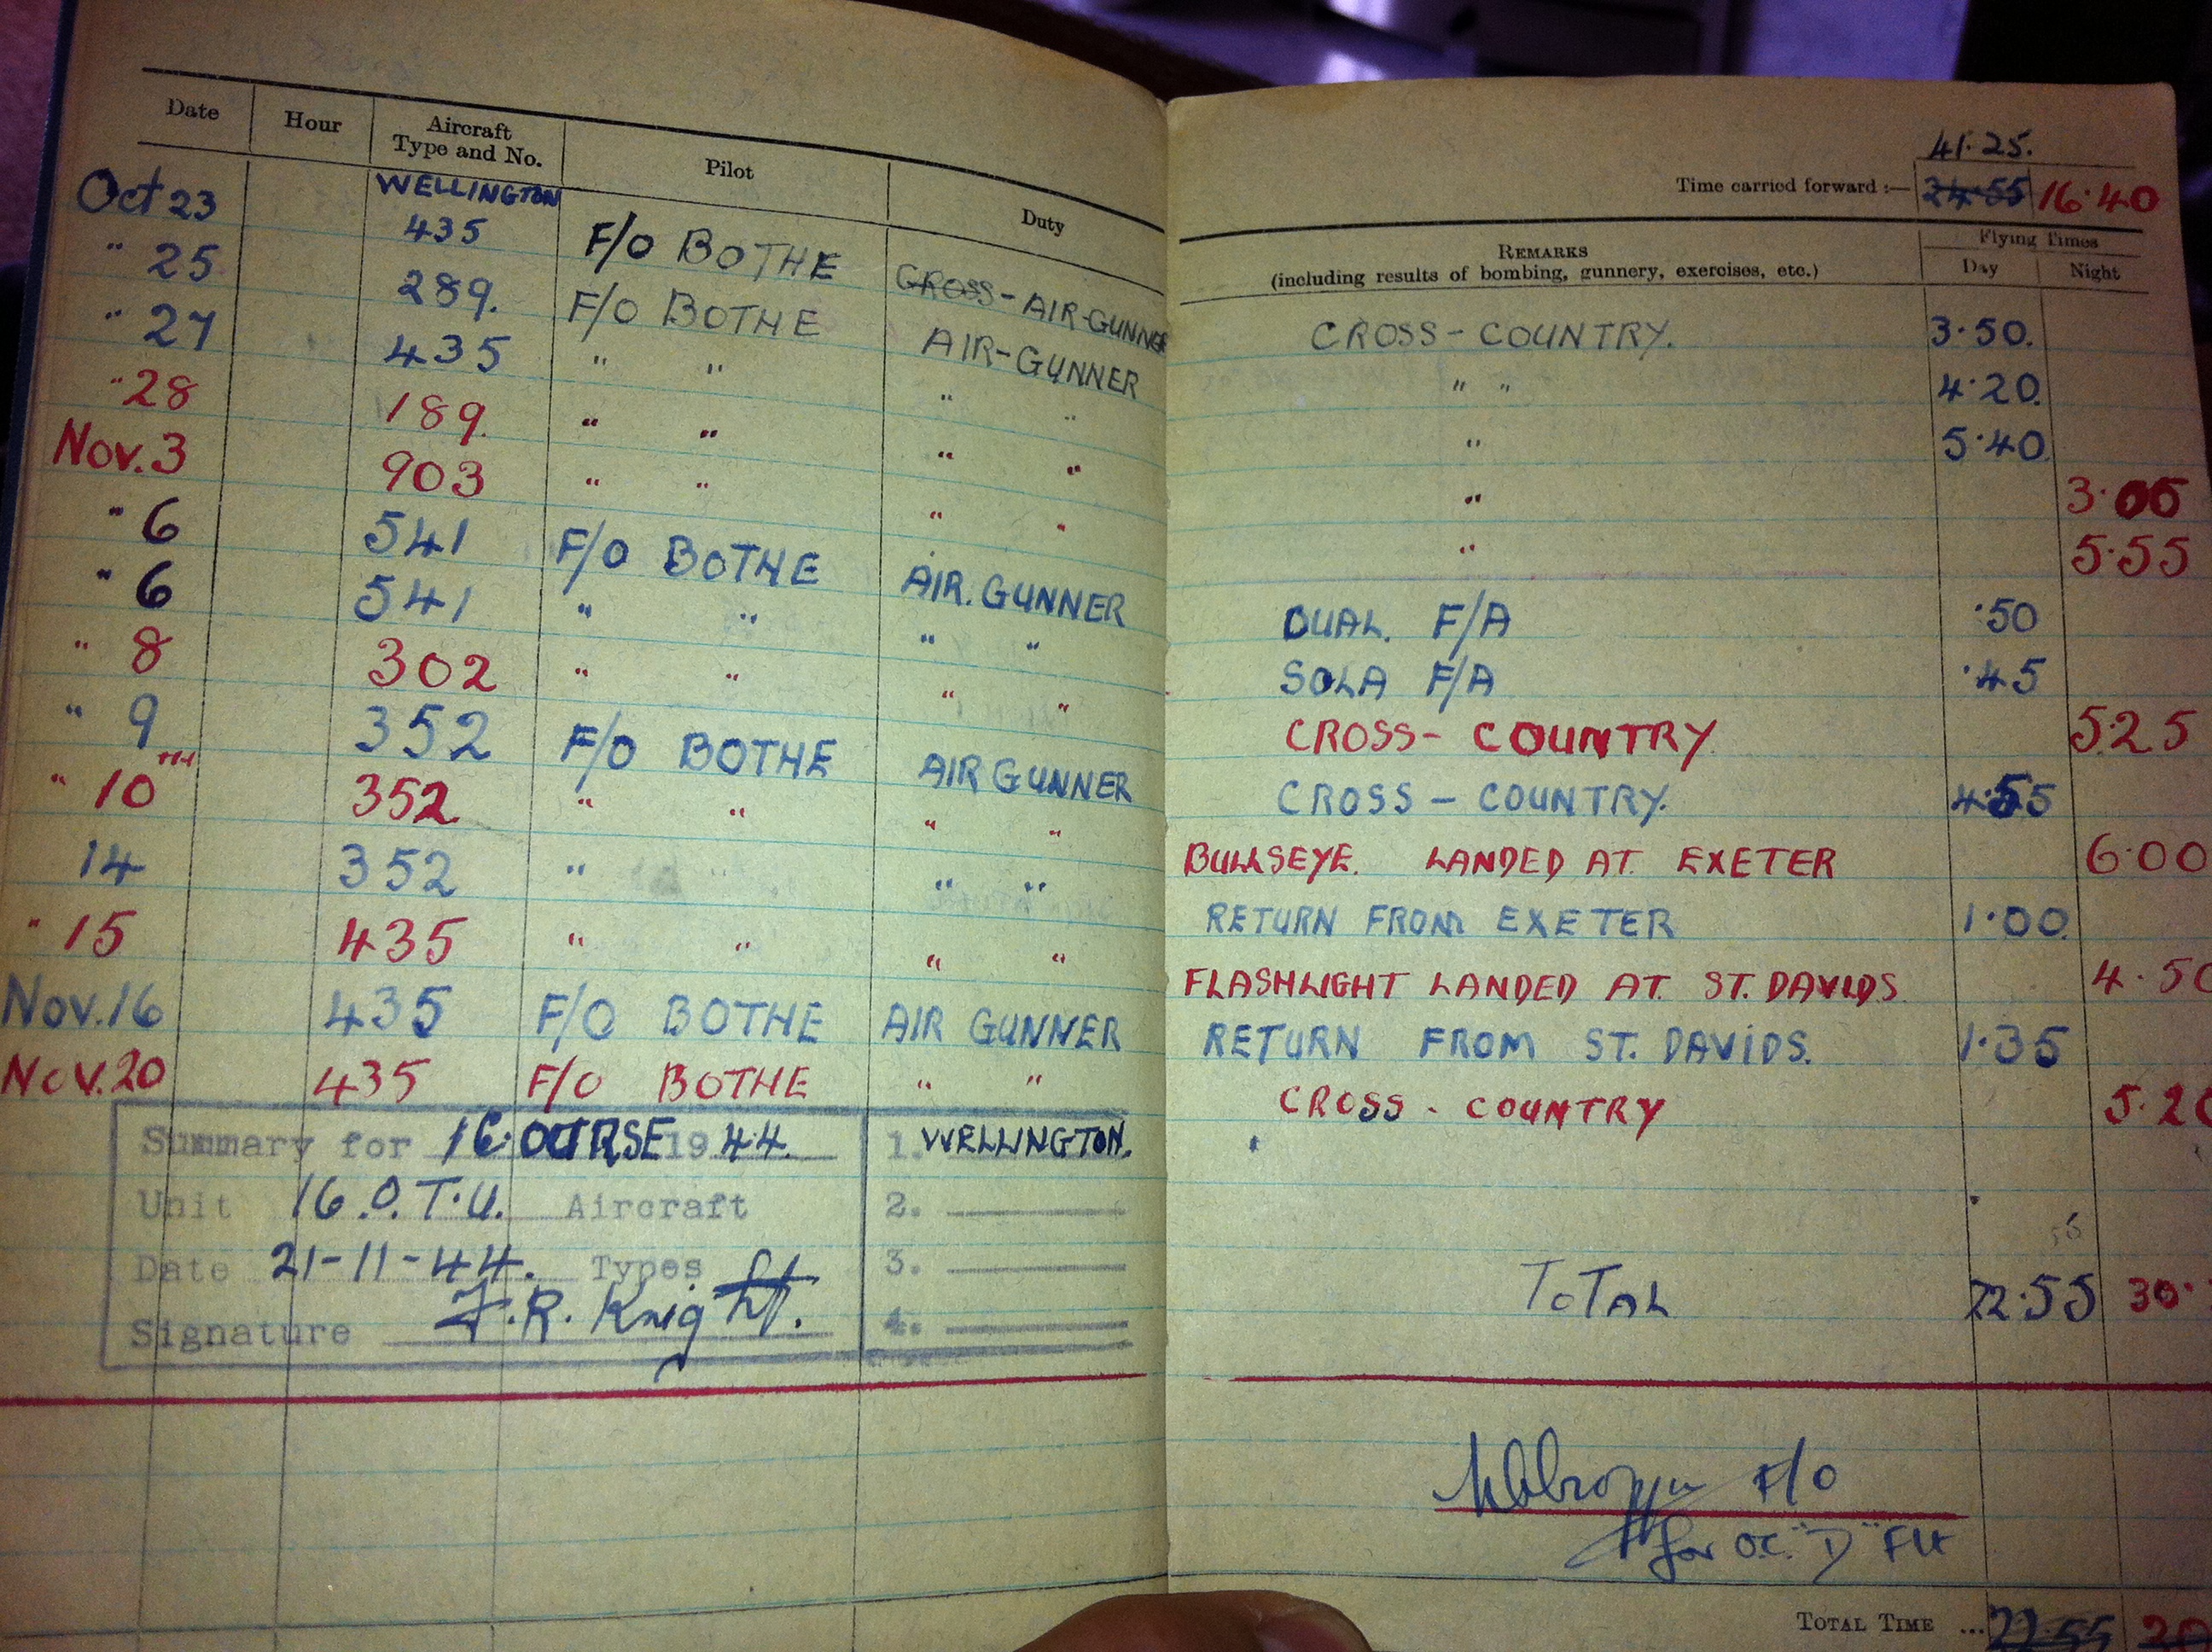 Date Hour Aircraft Type and No. Pilot Duty
WELLINGTON
Oct 23 435 F/O BOTHE CROSS- AIR-GUNNER
" 25 289. F/O BOTHE AIR-GUNNER
" 27 435 " " " "
" 28 189. " " " "
Nov. 3 903 " " " "
" 6 541 F/O BOTHE AIR. GUNNER
" 6 541 " " " "
" 8 302 " " " "
" 9 352 F/O BOTHE AIR GUNNER
" 10TH 352 " " " "
14 352 " " " "
" 15 435 " " " "
Nov. 16 435 F/O BOTHE AIR GUNNER
Nov. 20 435 F/O BOTHE " "
Summary for 16 COURSE 19 44. 1. WELLINGTON.
Unit 16. O.T.U. Aircraft 2.
Date 21-11-44. Types 3.
Signature F.R. Knight. 4.
41.25.
Time carried forward :— 24.55 16.40
REMARKS
(including results of bombing, gunnery, exercises, etc.)
Flying Times
Day Night
CROSS-COUNTRY. 3.50.
" " 4.20.
" 5.40.
" 3.05
" 5.55
DUAL. F/A .50
SOLA F/A .45
CROSS-COUNTRY 5.25
CROSS-COUNTRY. 4.55
BULLSEYE. LANDED AT EXETER 6.00
RETURN FROM EXETER 1.00
FLASHLIGHT LANDED AT ST. DAVIDS. 4.50
RETURN FROM ST. DAVIDS. 1.35
CROSS-COUNTRY 5.20
TOTAL 22.55 30.
F/O
for O.C. "D" Flt
TOTAL TIME ... 22.55